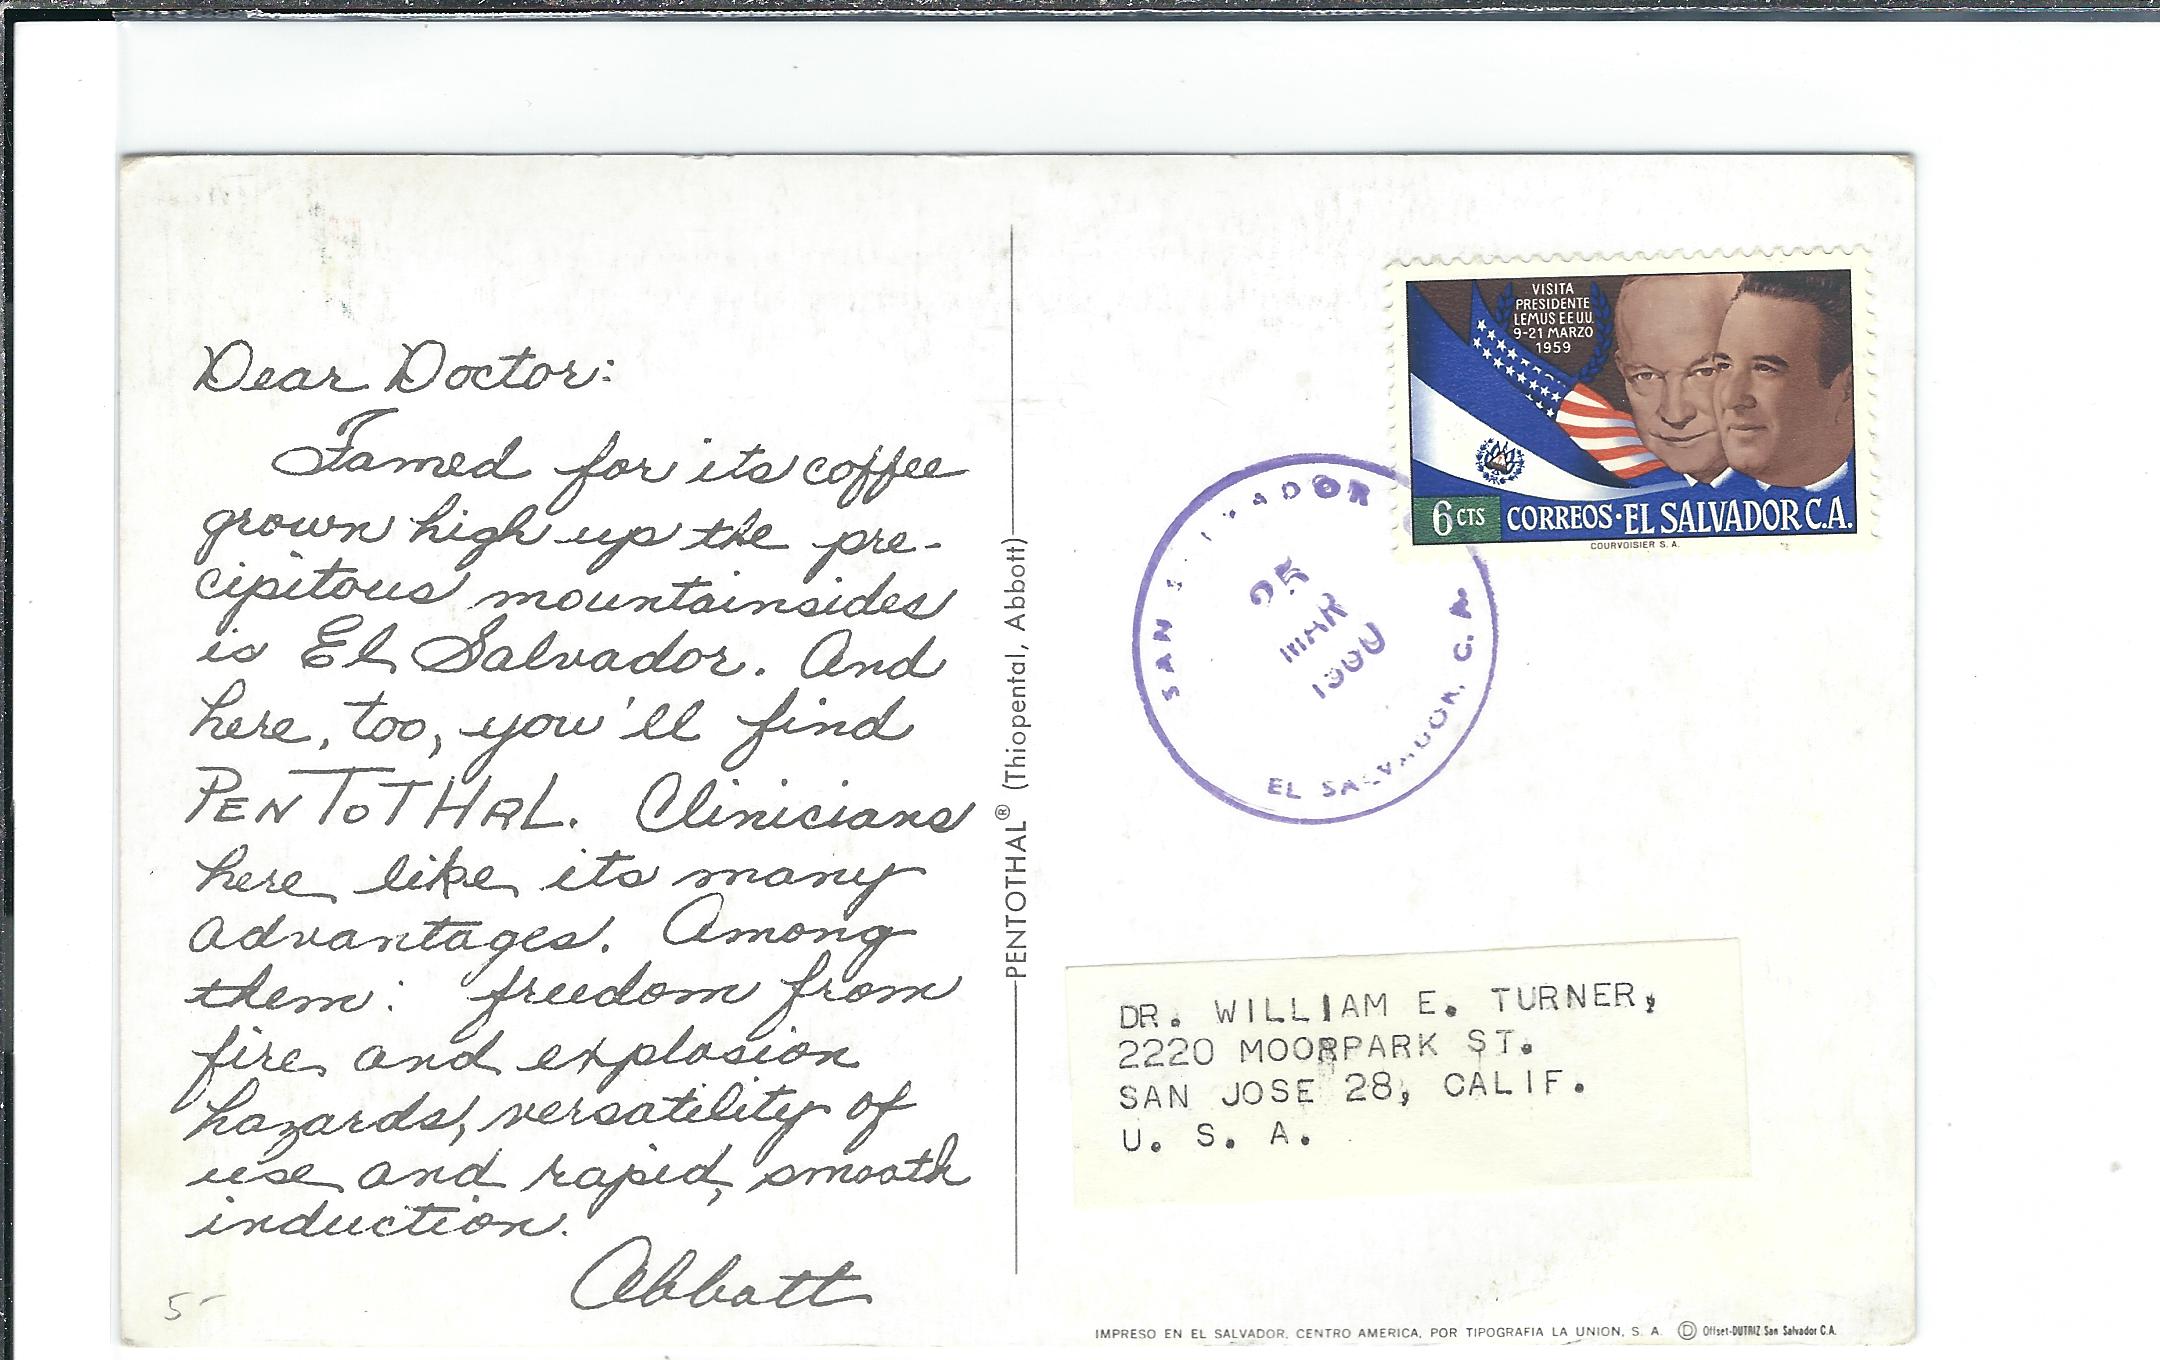 Dear Doctor:
Famed for its coffee
grown high up the pre-
cipitous mountainsides
is El Salvador. And
here, too, you'll find
PENTOTHAL. Clinicians
here like its many
advantages. Among
them: freedom from
fire and explosion
hazards, versatility of
use and rapid, smooth
induction.
Abbott
5-
PENTOTHAL® (Thiopental, Abbott)
VISITA
PRESIDENTE
LEMUS EE UU.
9-21 MARZO
1959
6 CTS CORREOS·EL SALVADOR C.A.
COURVOISIER S. A.
SAN SALVADOR
25
MAR
1960
EL SALVADOR, C. A.
DR. WILLIAM E. TURNER,
2220 MOORPARK ST.
SAN JOSE 28, CALIF.
U. S. A.
IMPRESO EN EL SALVADOR, CENTRO AMERICA, POR TIPOGRAFIA LA UNION, S. A. Ⓓ Offset-DUTRIZ San Salvador C.A.